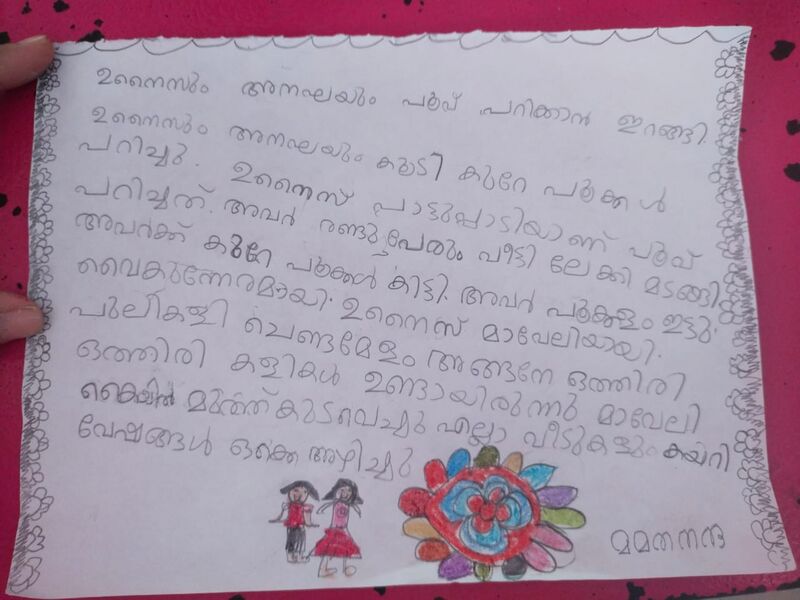 ഉനൈസും അനഘയും പൂവ് പറിക്കാൻ ഇറങ്ങി.
ഉനൈസും അനഘയും കൂടി കുറേ പൂക്കൾ
പറിച്ചു. ഉനൈസ് പാട്ടുപ്പാടിയാണ് പൂവ്
പറിച്ചത്. അവർ രണ്ടുപേരും വീട്ടി ലേക്കി മടങ്ങി.
അവർക്ക് കുറേ പൂക്കൾ കിട്ടി. അവർ പൂക്കളം ഇട്ടു.
വൈകുന്നേരമായി. ഉനൈസ് മാവേലിയായി.
പുലികളി ചെണ്ടമേളം അങ്ങനേ ഒത്തിരി
ഒത്തിരി കളികൾ ഉണ്ടായിരുന്നു മാവേലി
കൈയിൽ മുത്ത്കുടവെച്ചു എല്ലാ വീടുകളും കയറി
വേഷങ്ങൾ ഒക്കെ അഴിച്ചു